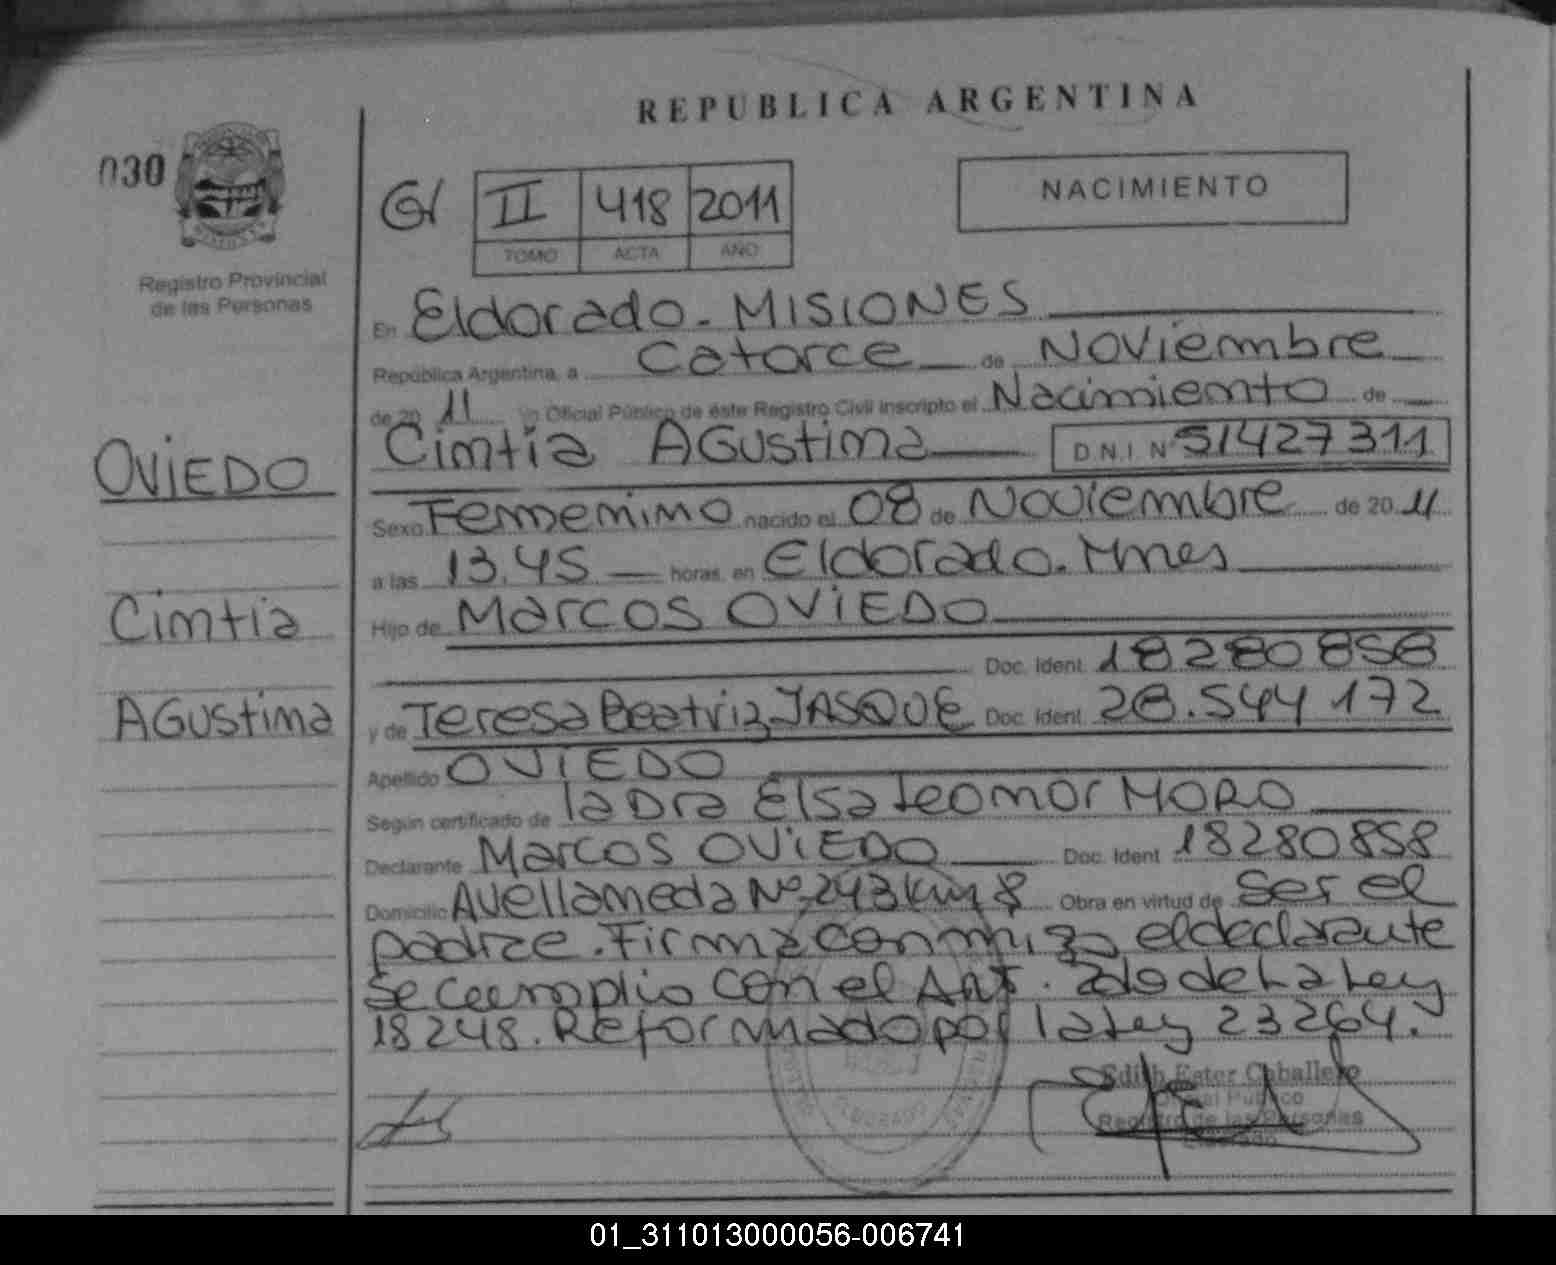 REPUBLICA ARGENTINA
030
Registro Provincial
de las Personas
G/ II 418 2011
TOMO ACTA AÑO
NACIMIENTO
En Eldorado - MISIONES
República Argentina, a Catorce de Noviembre
de 20 11 yo Oficial Público de éste Registro Civil inscripto el Nacimiento de
Cimtia AGustima D.N.I Nº 51427311
OVIEDO
Cimtia
AGustima
Sexo Femenimo nacido el 08 de Noviembre de 20 11
a las 13.45 horas, en Eldorado. Mnes
Hijo de Marcos OVIEDO
Doc. Ident. 18280858
y de Teresa Beatriz JASQUE Doc. Ident. 28.544 172
Apellido OVIEDO
Según certificado de la Dra Elsa Leomor MORO
Declarante Marcos OVIEDO Doc. Ident 18280858
Domicilio Avellameda Nº 243 km 8 Obra en virtud de Ser el
padre. Firma conmigo el declarante
Se cumplio con el Art. 2do de La Ley
18248. Reformado por la Ley 23264.
Edith Ester Caballero
Oficial Público
Registro de las Personas
Eldorado
01_311013000056-006741